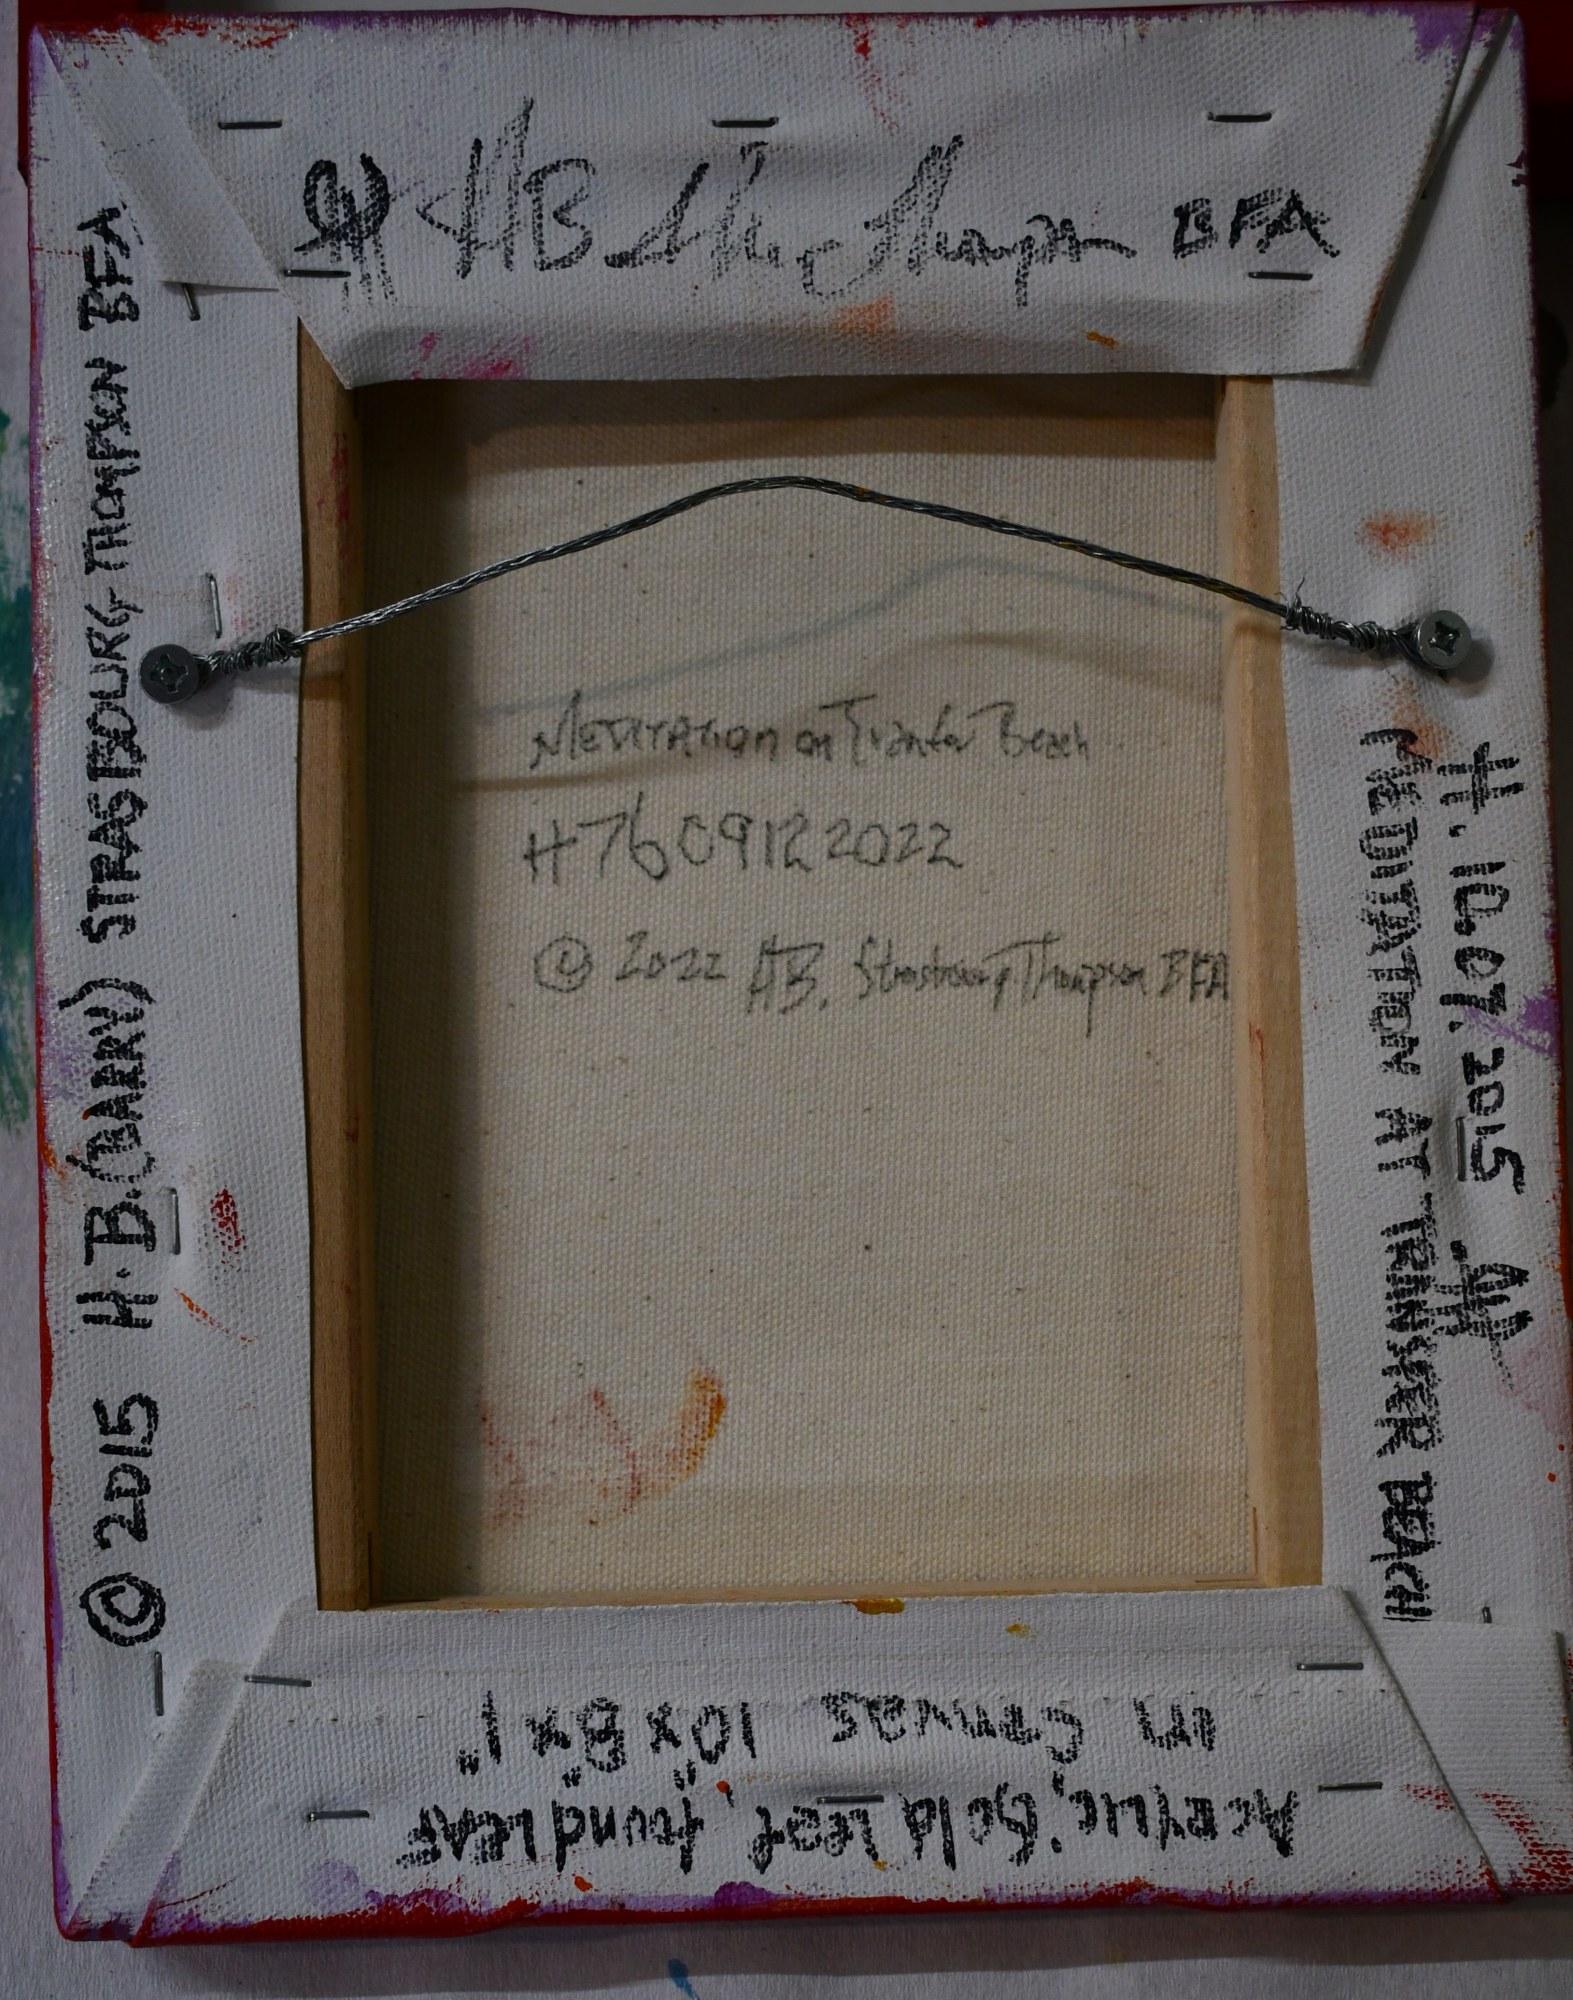 HB Strasbourg Thompson BFA
© 2015 H.B.(BARRY) STRASBOURG-THOMPSON BFA
MEDITATION on Tranfer Beach
H76 09122022
© 2022 HB. Strasbourg Thompson BFA
H.10.07.2015
MEDITATION AT TRANSFER BEACH
Acrylic, Gold Leaf, found LEAF
on Canvas 10"x 8"x 1"